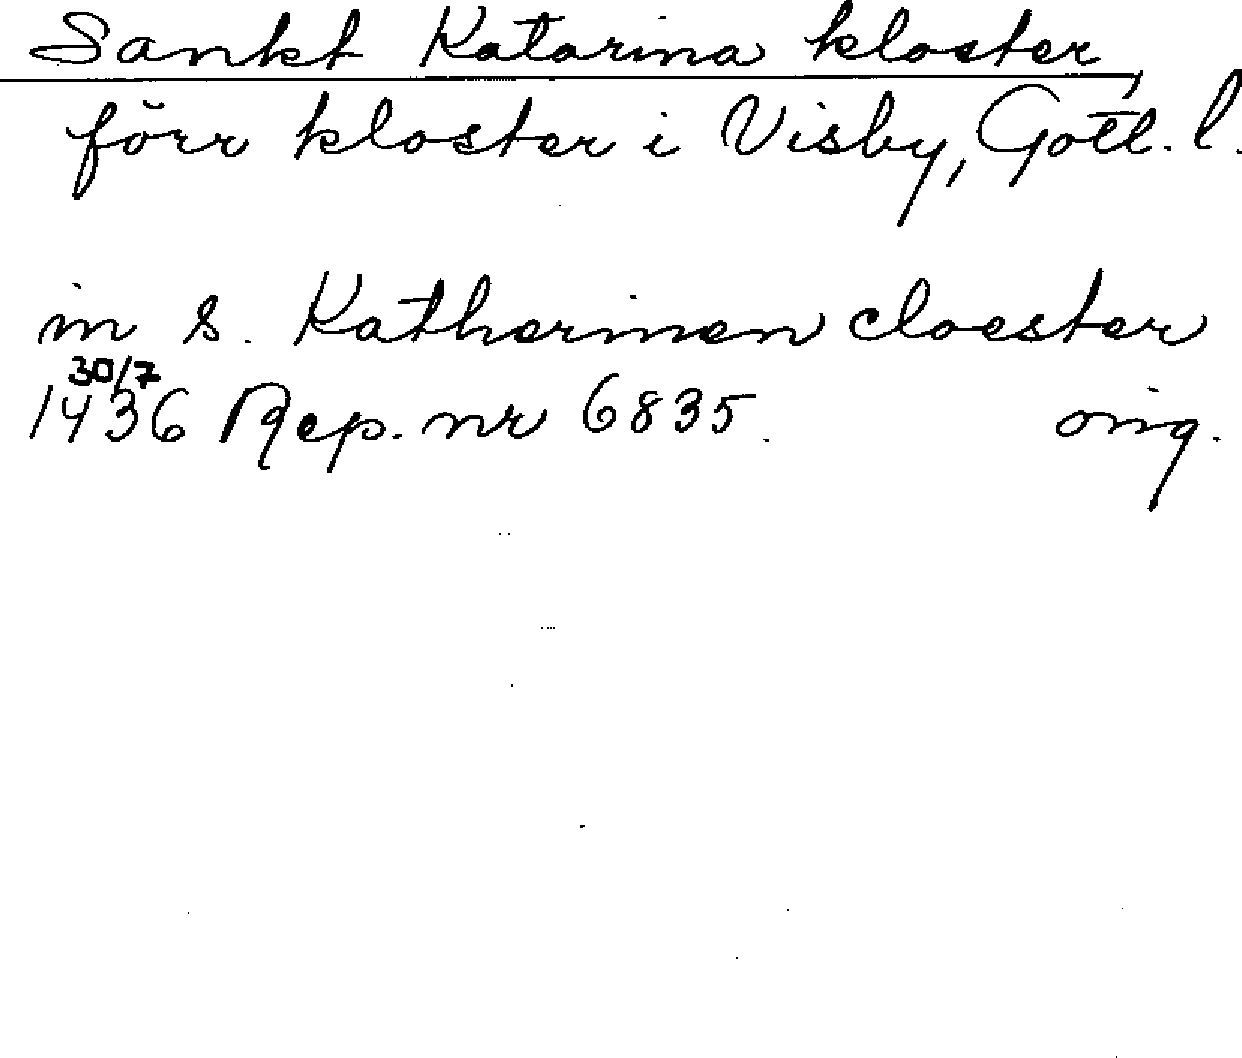 Sankt Katarina kloster,
förr kloster i Visby, Gotl. l.
in s. Katherinen cloester
30/7
1436 Rep. nr 6835. orig.